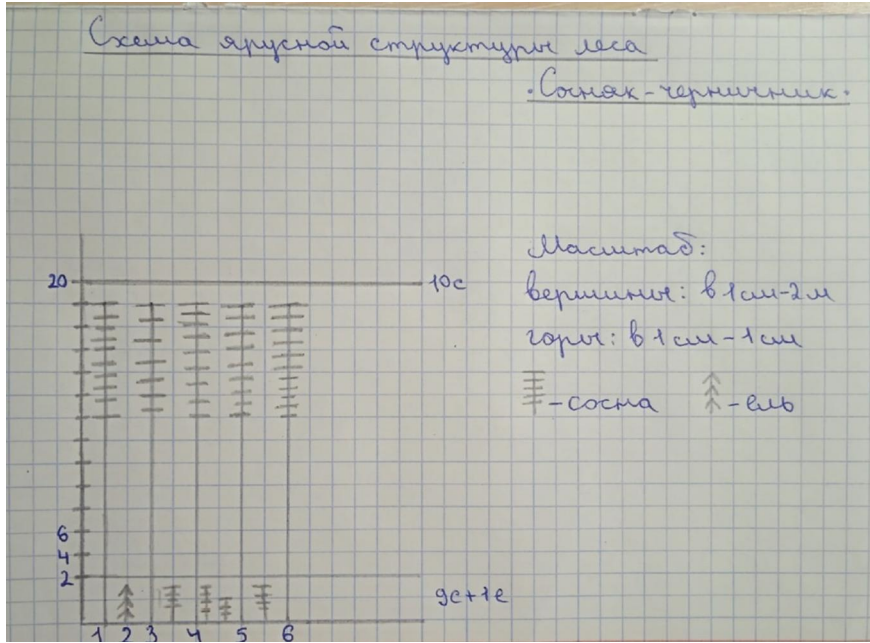 Схема ярусной структуры леса
Сосняк-черничник.
Масштаб:
20
10с
вершины: в 1 см-2м
горы: в 1 см-1см
-сосна
-ель
6
4
2
9с+1е
1 2 3 4 5 6